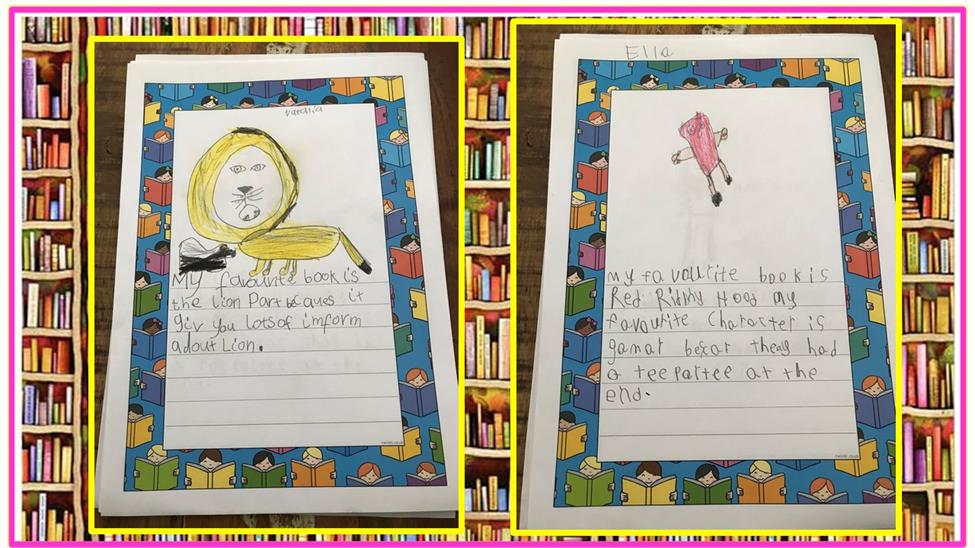 Natalia
My favourite book is
the Lion Part becaues it
giv you lots of imform
adout Lion.
twinkl.co.uk
Ella
my favourite book is
Red Riding Hood my
favourite character is
gamar becar theay had
a tee partee at the
end.
twinkl.co.uk